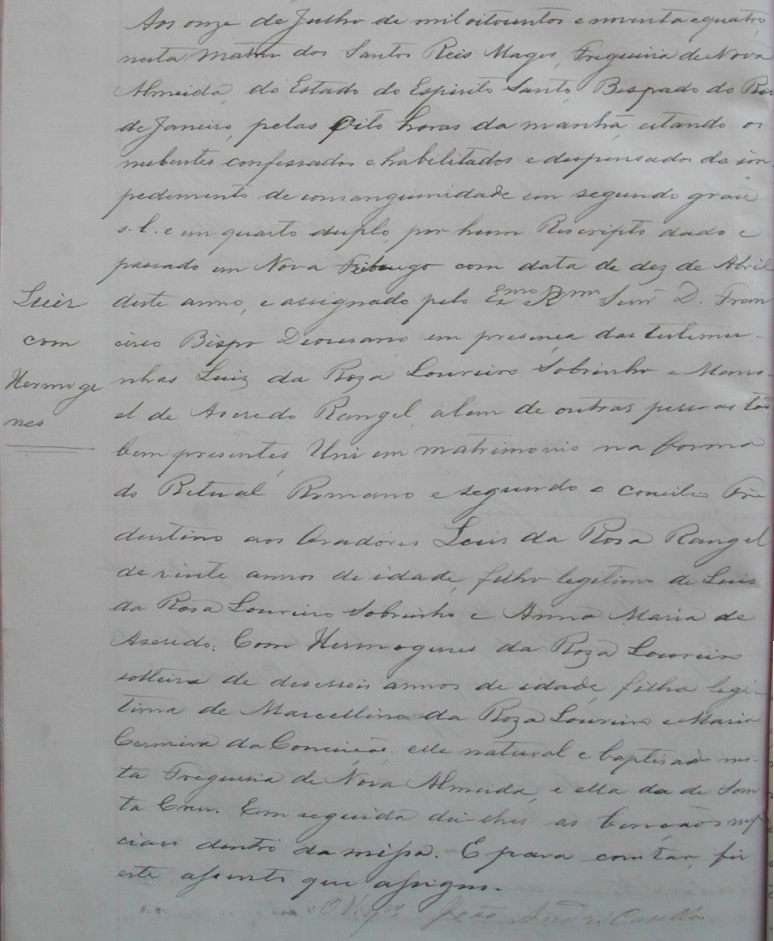 Aos onze de Julho de mil oitocentos e noventa e quatro,
nesta Matriz dos Santos Reis Magos, Freguezia de Nova
Almeida, do Estado do Espirito Santo, Bispado do Rio
de Janeiro, pelas Oito horas da manhã, estando os
nubentes confessados e habilitados e despensados do im
pedimento de consanguinidade em segundo grau
s. l. e em quarto duplo, por hum Rescripto dado e
passado em Nova Friburgo com data de dez de Abril
Luiz
deste anno, e assignado pelo Exmo Rmo Snr D. Fran
com
cisco Bispo Diocesano em presença das testemu-
Hermoge
nhas Luiz da Roza Loureiro Sobrinho e Mano-
nes
el de Aseredo Rangel, alem de outras pessoas tão
bem presentes, Uni em matrimonio na forma
do Retual Romano e segundo o concilio Tri
dentino aos Oradores Luis da Rosa Rangel
de vinte annos de idade, filho legitimo de Luis
da Rosa Loureiro Sobrinho e Anna Maria de
Aseredo. Com Hermogenes da Roza Loureiro
solteira de deseseis annos de idade, filha legi-
tima de Marcellino da Roza Loureiro e Maria
da Conceição, elle natural e baptisado nes-
ta Freguezia de Nova Almeida, e ella da de San
ta Cruz. Em seguida dei-lhes as bençãos nup
ciaes dentro da missa. E para constar, fiz
este assento que assigno.
O Vigro João